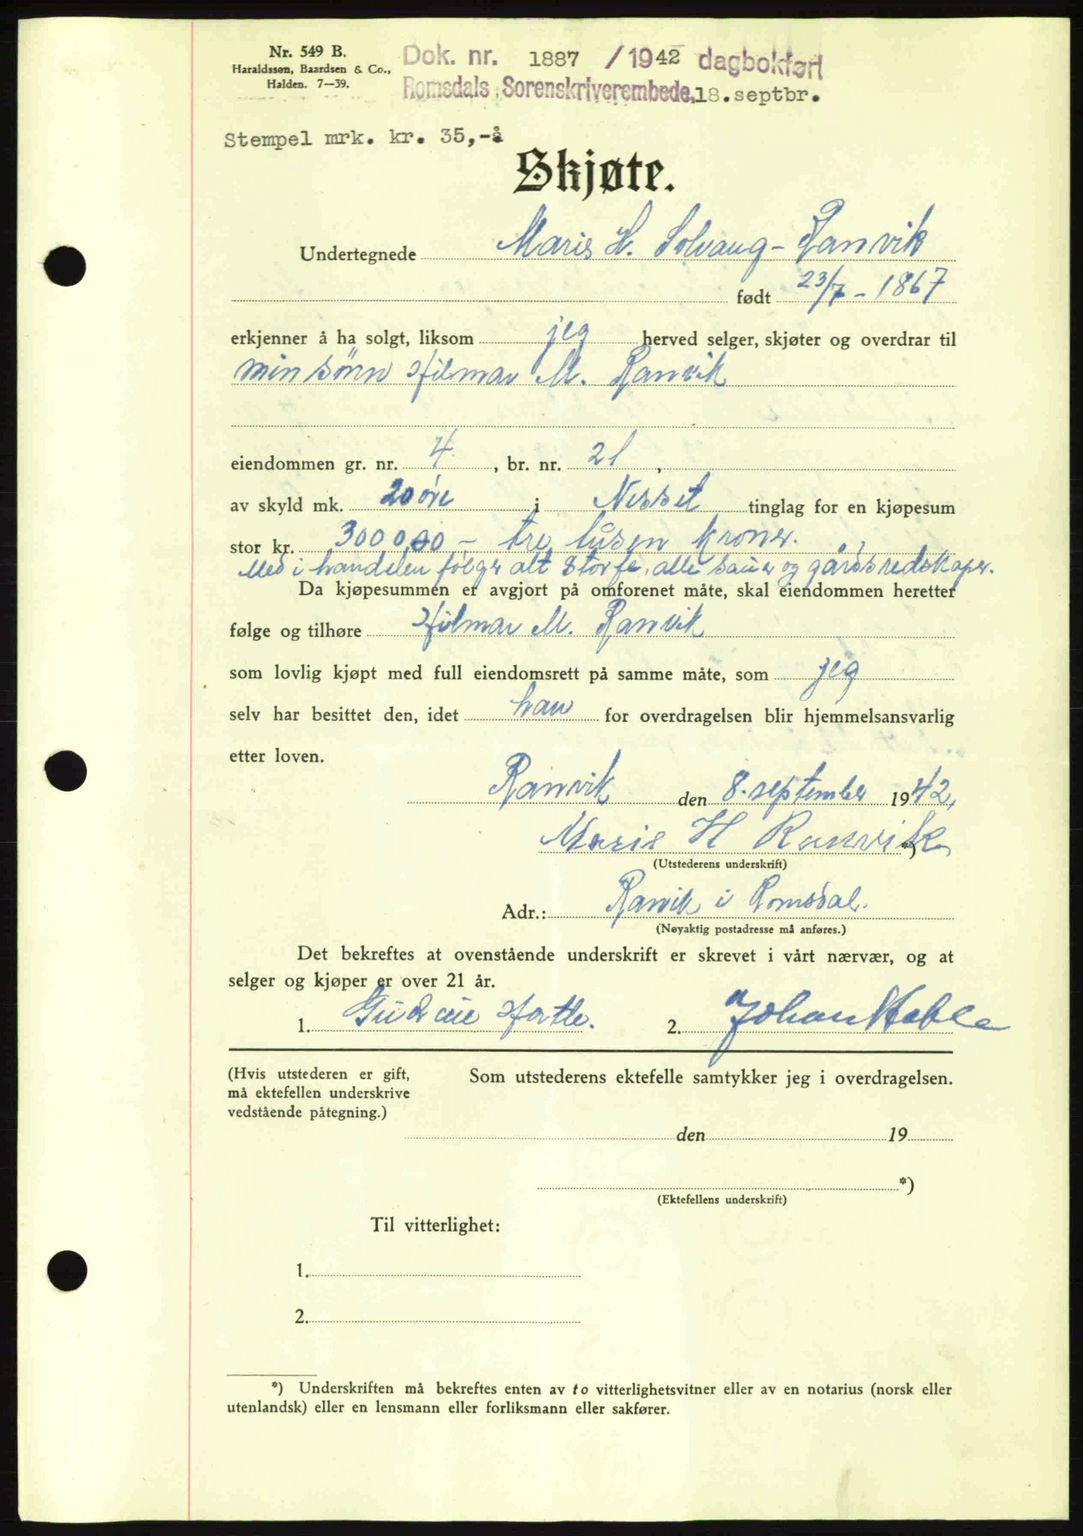 Nr. 549 B.
Haraldssøn, Baardsen & Co.,
Halden. 7—39.
Dok. nr. 1887 /1942 dagbokført
Romsdals Sorenskriverembede, 18.septbr.
Stempel mrk. kr. 35,-å
Skjøte.
Undertegnede Marie H. Solvang - Ranvik
født 23/7 - 1867
erkjenner å ha solgt, liksom jeg herved selger, skjøter og overdrar til
min sønn Hilmar M. Ranvik
eiendommen gr. nr. 4 , br. nr. 21 ,
av skyld mk. 20 øre i Nesset tinglag for en kjøpesum
stor kr. 3000,00 - tre tusen kroner.
Med i handelen følger alt storfe, alle sauer og gårdsredskaper.
Da kjøpesummen er avgjort på omforenet måte, skal eiendommen heretter
følge og tilhøre Hilmar M. Ranvik
som lovlig kjøpt med full eiendomsrett på samme måte, som jeg
selv har besittet den, idet han for overdragelsen blir hjemmelsansvarlig
etter loven.
Ranvik den 8. september 1942,
Marie H Ranvik *)
(Utstederens underskrift)
Adr.: Ranvik i Romsdal.
(Nøyaktig postadresse må anføres.)
Det bekreftes at ovenstående underskrift er skrevet i vårt nærvær, og at
selger og kjøper er over 21 år.
1. 2. Johan
(Hvis utstederen er gift,
må ektefellen underskrive
vedstående påtegning.)
Som utstederens ektefelle samtykker jeg i overdragelsen.
den 19
*)
(Ektefellens underskrift)
Til vitterlighet:
1.
2.
*) Underskriften må bekreftes enten av to vitterlighetsvitner eller av en notarius (norsk eller
utenlandsk) eller en lensmann eller forliksmann eller sakfører.